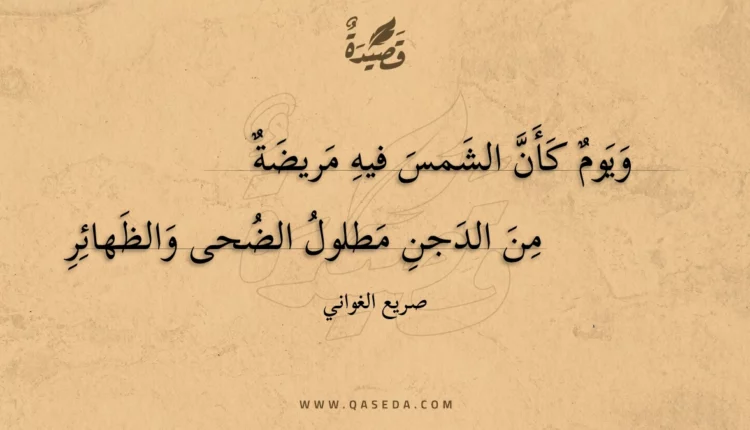 قَصِيْدَةٌ
وَيَومٌ كَأَنَّ الشَمسَ فيهِ مَريضَةٌ
مِنَ الدَجنِ مَطلولُ الضُحى وَالظَهائِرِ
صريع الغواني
WWW.QASEDA.COM